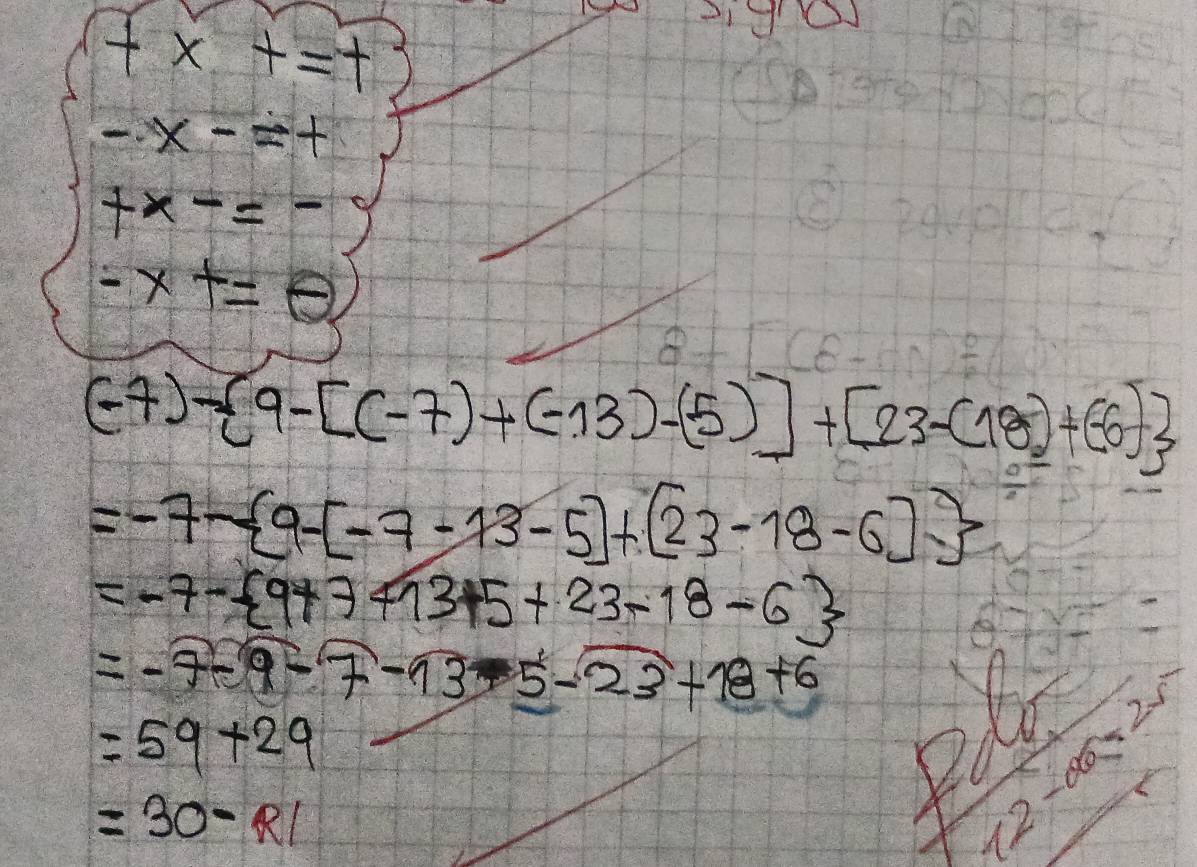 signos
+ x + = +
- x - = +
+ x - = -
- x + = -
(-7)-{9-[(-7)+(-13)-(5)]+[23-(18)+(-6)]}
=-7-{9-[-7-13-5]+[23-18-6]}
=-7-{9+7+13+5+23-18-6}
=-7-9-7-13-5-23+18+6
=59+29
=30- R/
12-06-25